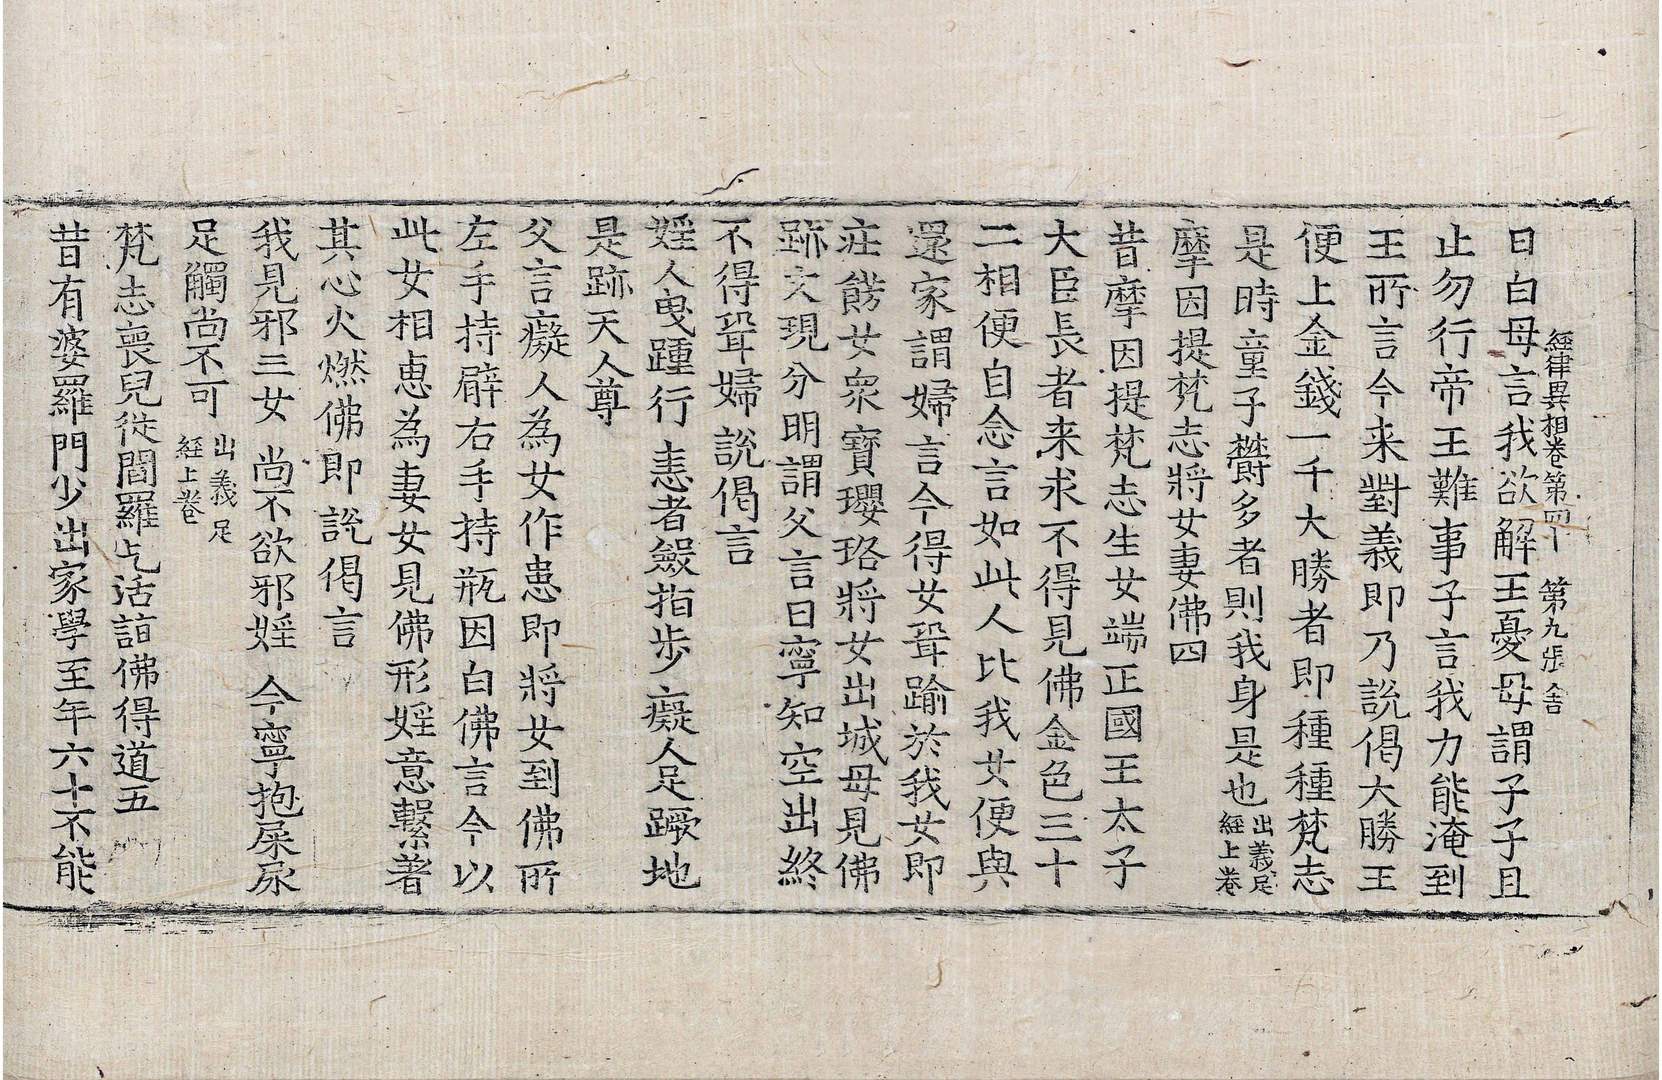 經律異相卷第四十　第九張　舍
日白母言我欲解王憂母謂子子且
止勿行帝王難事子言我力能淹到
王所言今来對義即乃說偈大勝王
便上金錢一千大勝者即種種梵志
是時童子欝多者則我身是也出義足經上卷
摩因提梵志將女妻佛四
昔摩因提梵志生女端正國王太子
大臣長者来求不得見佛金色三十
二相便自念言如此人比我女便與
還家謂婦言今得女聟踰於我女即
莊餝女衆寶瓔珞將女出城母見佛
跡文現分明謂父言曰寧知空出終
不得聟婦說偈言
婬人曳踵行　恚者斂指步　癡人足蹶地
是跡天人尊
父言癡人為女作患即將女到佛所
左手持臂右手持瓶因白佛言今以
此女相惠為妻女見佛形婬意繫著
其心火燃佛即說偈言
我見邪三女　尚不欲邪婬　今寧抱屎尿
足觸尚不可出義足經上卷
梵志喪兒從閻羅乞活詣佛得道五
昔有婆羅門少出家學至年六十不能